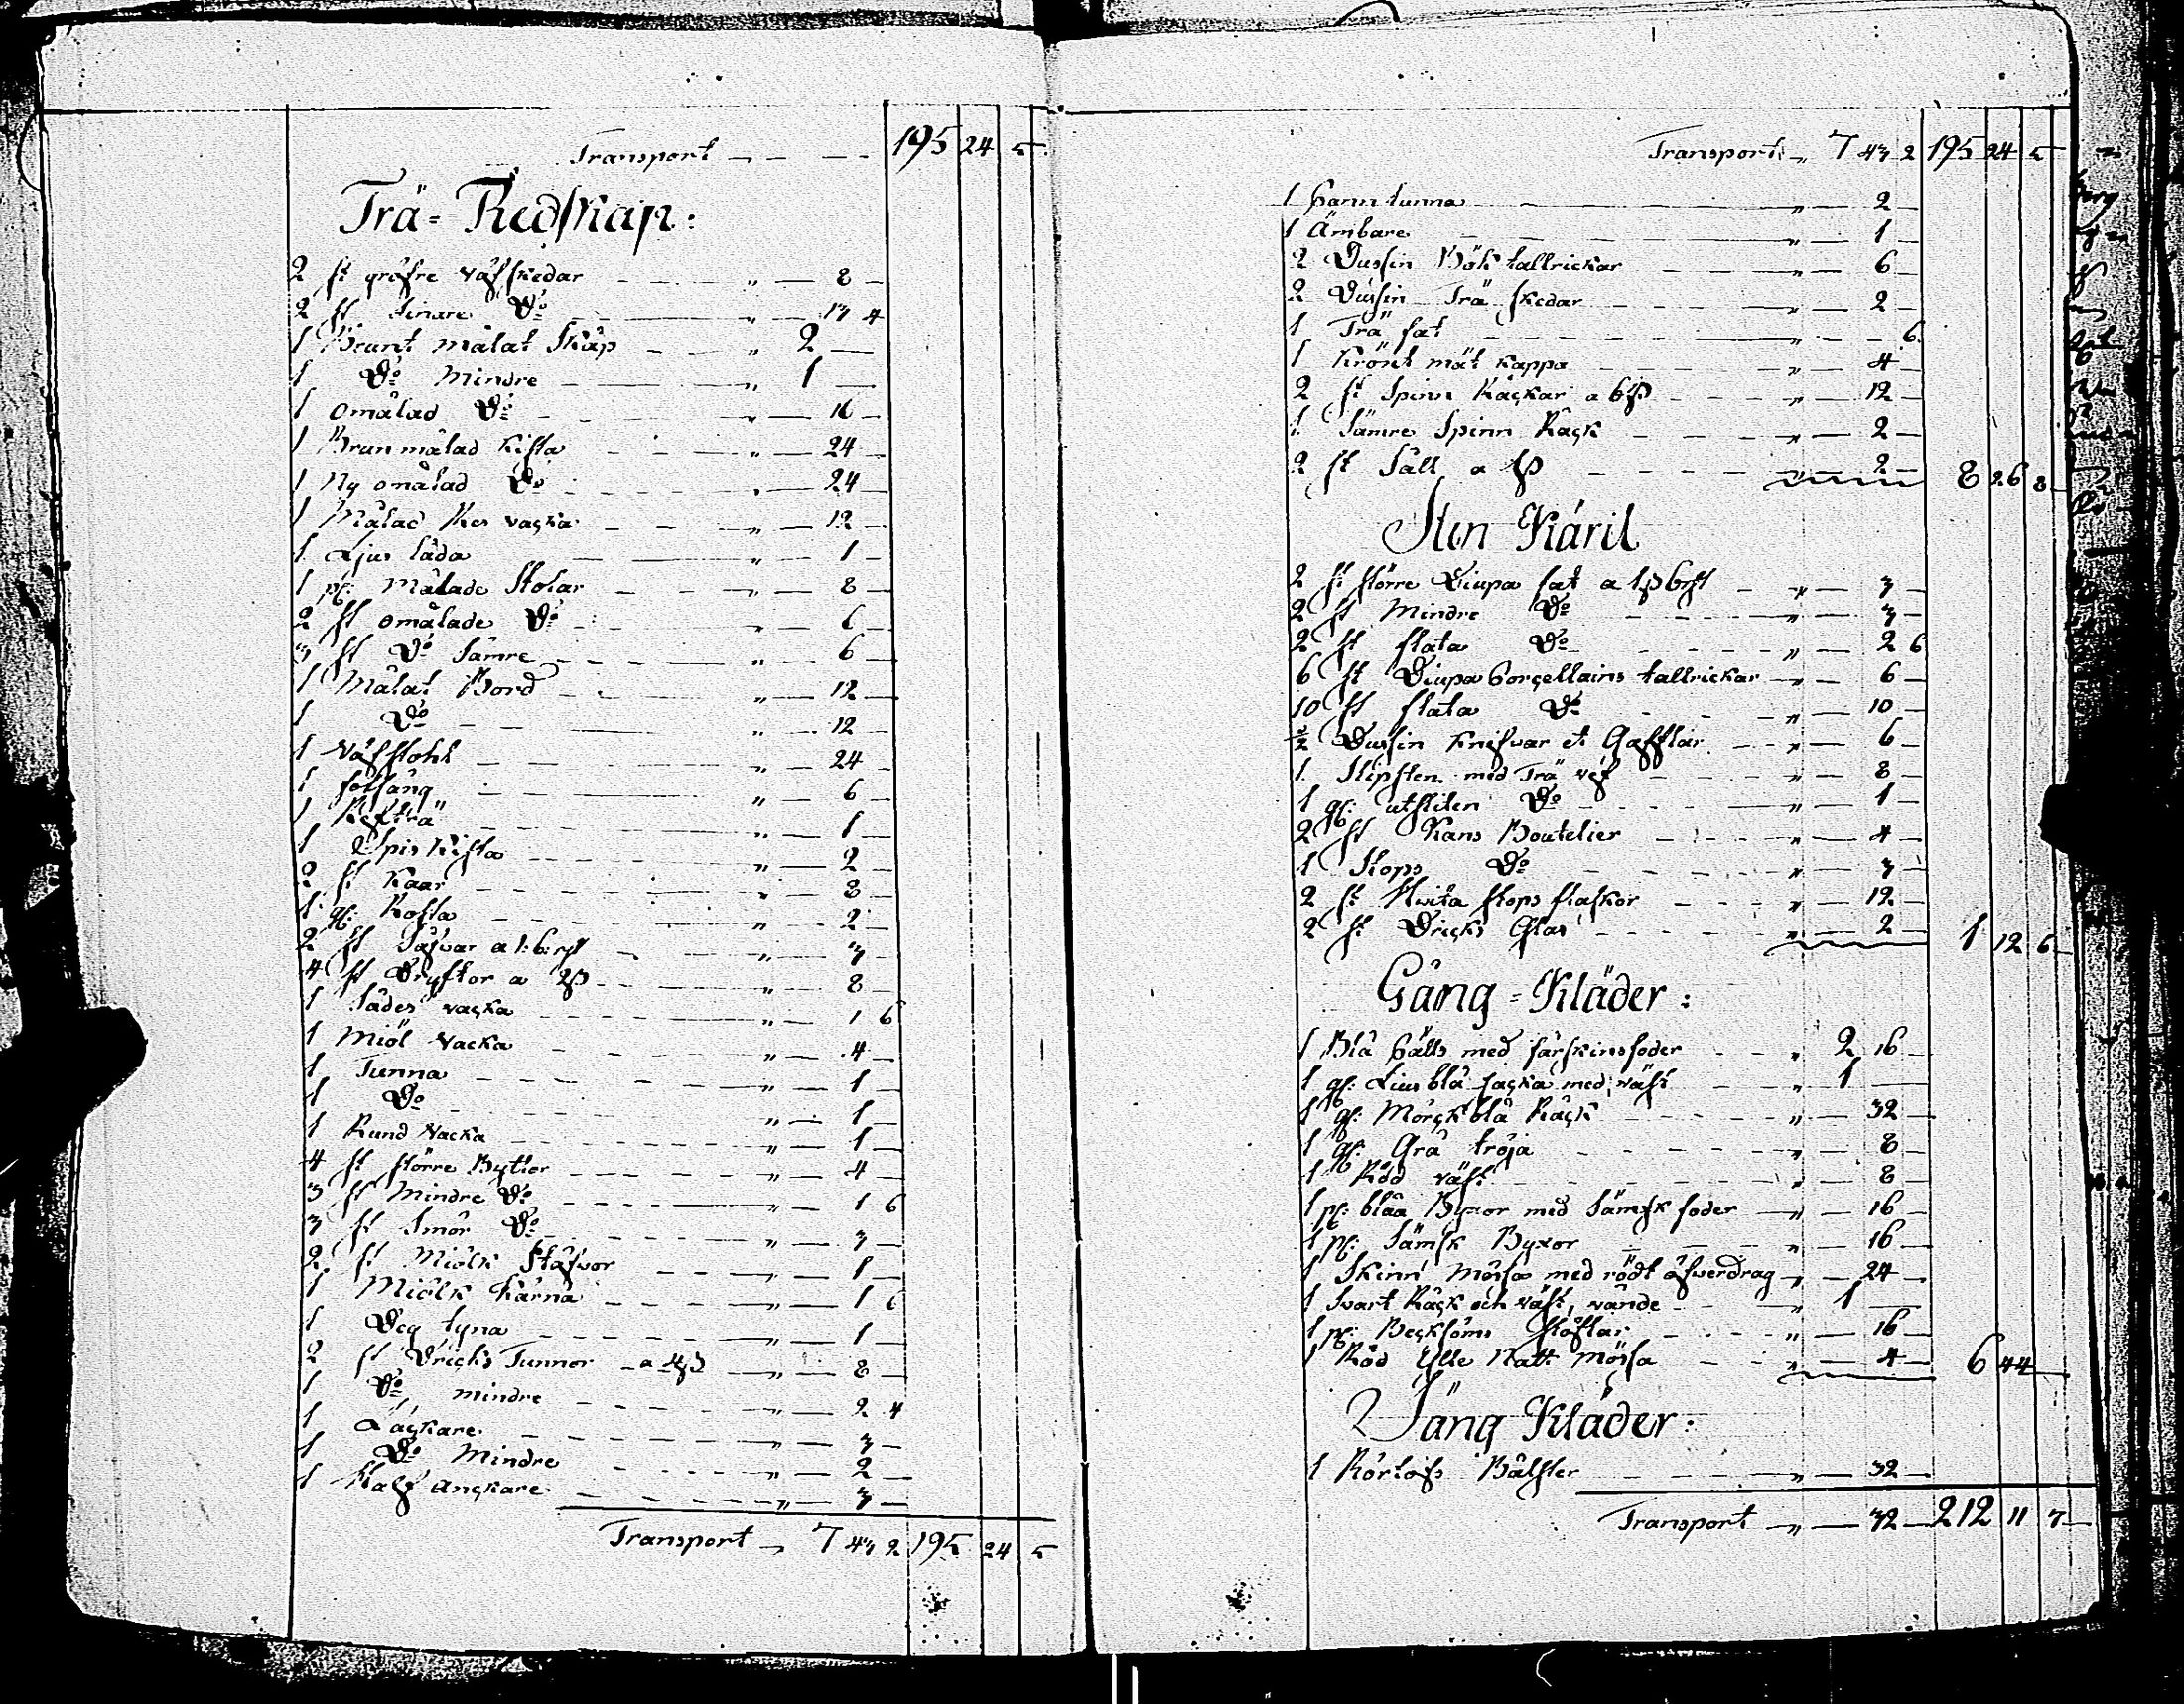 Transport - - - 195 24 5
Trä-Redskap:
2 st gröfre Väfskedar - - - " - 8 -
2 st finare Do - - - " - 13 4
1 Brunt målat Skåp - - " 2 -
1 Do Mindre - - " 1 -
1 omålad Do - - " - 16 -
1 Brun målad Kista - - " - 24 -
1 Ny omålad Do - - " - 24 -
1 Målad Res vacka - - " - 12 -
1 Ljus låda - - " - 1 -
1 pr: Målade Stolar - - " - 8 -
2 st omålade Do - - " - 6 -
3 st Do Sämre - - " - 6 -
1 Målat Bord - - " - 12 -
1 Do - - " - 12 -
1 Väfstohl - - " - 24 -
1 fållsäng - - " - 6 -
1 - - " - 1 -
1 Spis Kista - - " - 2 -
2 st Kaar - - " - 8 -
1 gl: Rosta - - " - 2 -
2 st Såfvar a 1: 6: rst - " - 3 -
4 st Dryftor a 2ß - - " - 8 -
1 Sädes vacka - - " - 1 6
1 Miöl Vacka - - " - 4 -
1 Tunna - - " - 1 -
1 Do - - " - 1 -
1 Rund Vacka - - " - 1 -
4 st större Byttor - - " - 4 -
3 st Mindre Do - - " - 1 6
3 st Smör Do - - " - 3 -
2 st Miölk Stäfvor - - " - 1 -
1 Miölk Kärna - - " - 1 6
1 Deg tyna - - " - 1 -
2 st Dricks Tunnor - a 4ß - " - 8 -
1 Do mindre - - " - 2 4
1 Läckare - - " - 3 -
1 Do Mindre - - " - 2 -
1 Half anckare - - " - 3 -
Transport - 7 43 2 195 24 5
Transport " 7 43 2 195 24 5
1 tunna - - " - 2 -
1 Ämbare - - " - 1 -
2 Dussin Bök tallrickar - - " - 6 -
2 Dussin Trä skedar - - " - 2 -
1 Trä fat - - " - - 6
1 Krönt mät kappa - - " - 4 -
2 st Spinn Råckar a 6ß - - " - 12 -
1 Sämre Spinn Råck - - " - 2 -
2 st Såll a 1ß - - " - 2 - 8 26 8
Sten Käril
2 st större Diupa fat a 1ß 6rst - " - 3 -
2 st Mindre Do - - " - 3 -
2 st flata Do - - " - 2 6
6 st Diupa Porcellains tallrickar - " - 6 -
10 st flata Do - - " - 10 -
½ Dussin Knifvar et Gafflar - - " - 6 -
1 Slipsten med Trä vef - - " - 8 -
1 gl: utsliten Do - - " - 1 -
2 st Kans Boutelier - - " - 4 -
1 Stops Do - - " - 3 -
2 st Hvita stops flaskor - - " - 12 -
2 st Dricks Glas - - " - 2 - 1 12 6
Gång-Kläder:
1 Blå Pälts med fårskinsfoder - - " 2 16 -
1 gl: Lius blå jacka med väst - " 1 -
1 gl: Mörck blå Råck - - " - 32 -
1 gl: Grå tröja - - " - 8 -
1 Röd väst - - " - 8 -
1 pr: blåa Byxor med Sämsk foder - " - 16 -
1 pr: Sämsk Byxor - - " - 16 -
1 Skinn Mössa med rödt öfverdrag - " - 24 -
1 Svart Råck och väst, vände - - " 1 -
1 pr: Becksöms Stöflar - - " - 16 -
1 Röd Ylle Natt Mössa - - " - 4 - 6 44 -
Säng Kläder:
1 Bålster - - " - 32 -
Transport - " - 32 - 212 11 7